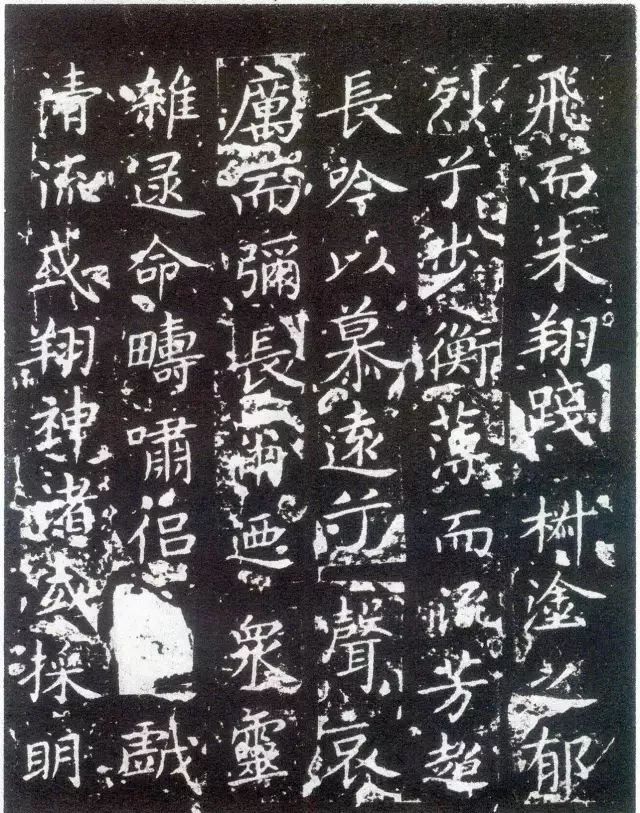 飛而未翔踐椒塗之郁
烈兮步衡薄而流芳超
長吟以慕遠兮聲哀
厲而彌長爾迺衆靈
雜遝命疇嘯侶戲
清流或翔神渚或採明